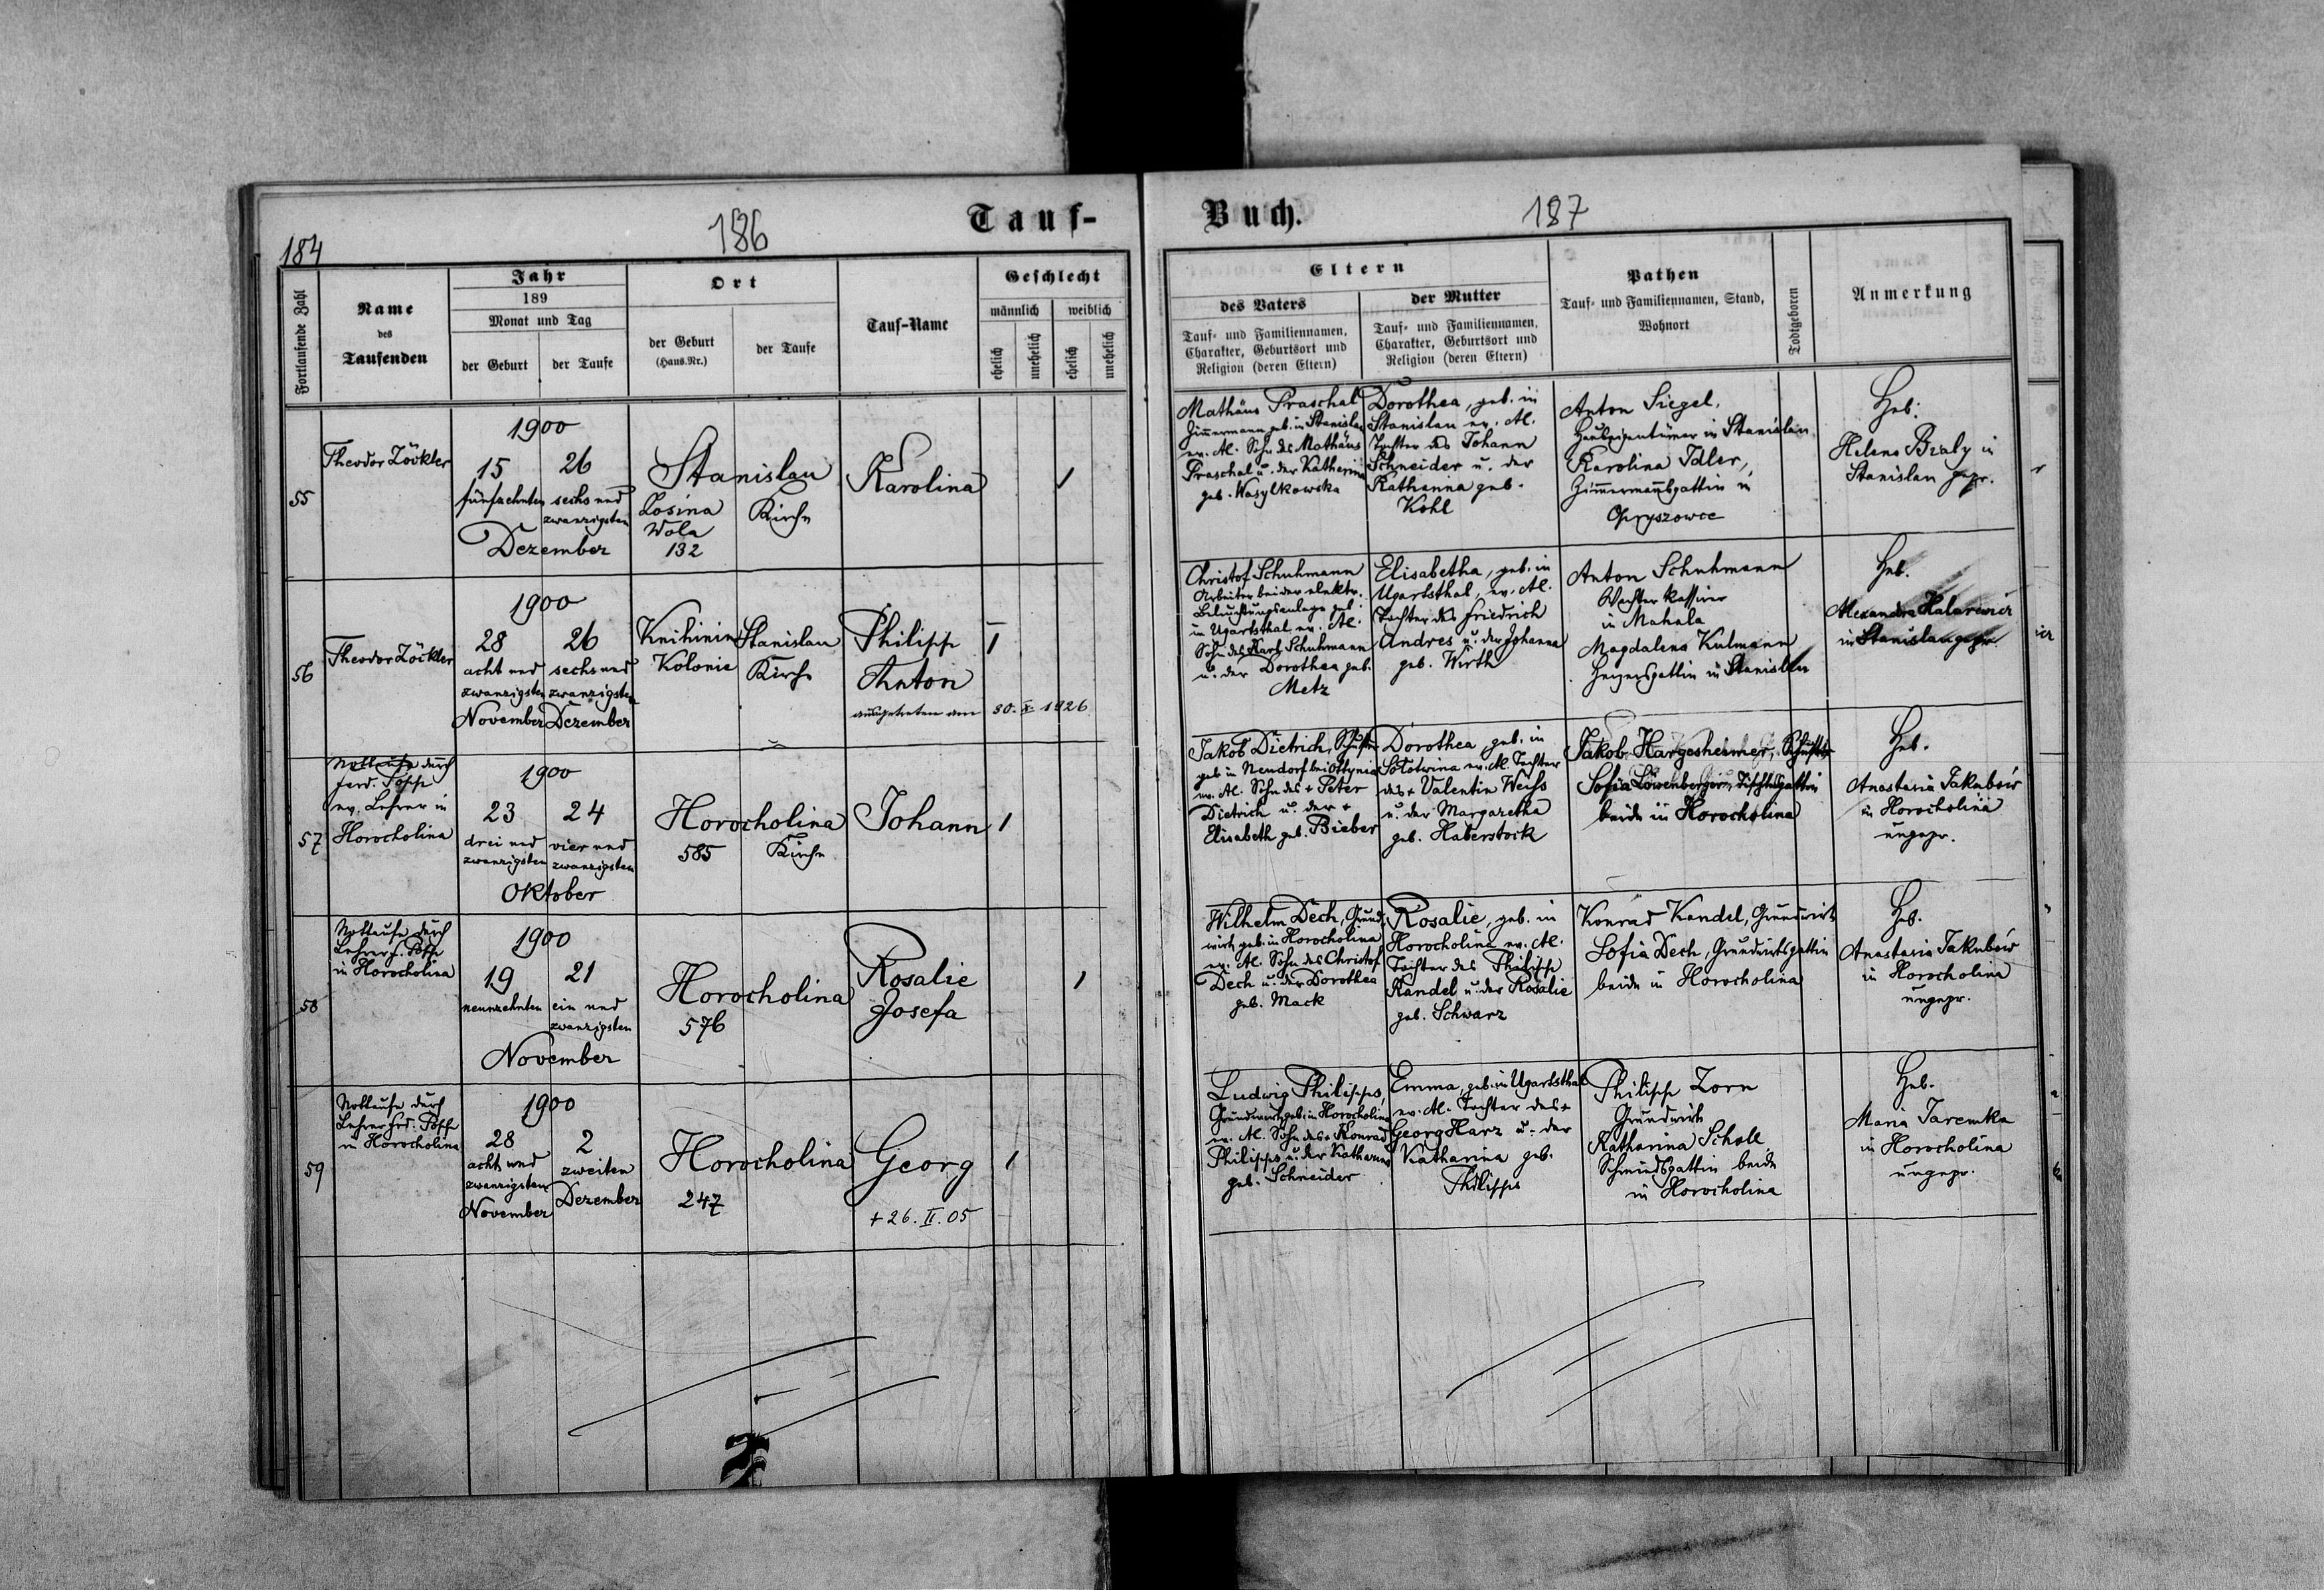 184
186
Tauf-
Fortlaufende Zahl
Name
des
Taufenden
Jahr
189
Monat und Tag
der Geburt
der Taufe
Ort
der Geburt
(Haus-Nr.)
der Taufe
Tauf-Name
Geschlecht
männlich
weiblich
ehelich
unehelich
ehelich
unehelich
55
Theodor Zöckler
1900
15
fünfzehnten
26
sechs und
zwanzigsten
Dezember
Stanislau
Losina
Wola
132
Kirche
Karolina
56
Theodor Zöckler
1900
28
acht und
zwanzigsten
November
26
sechs und
zwanzigsten
Dezember
Knihinin
Kolonie
Stanislau
Kirche
Philipp
Anton
ausgetreten am 30. X 1926
1
57
Nottaufe durch
ferd. Popp
ev. Lehrer in
Horocholina
1900
23
drei und
zwanzigsten
24
vier und
zwanzigsten
Oktober
Horocholina
585
Kirche
Johann
1
58
Nottaufe durch
Lehrer f. Popp
in Horocholina
1900
19
neunzehnten
21
ein und
zwanzigsten
November
Horocholina
576
Rosalie
Josefa
1
59
Nottaufe durch
Lehrer ferd. Popp
in Horocholina
1900
28
acht und
zwanzigsten
November
2
zweiten
Dezember
Horocholina
247
Georg
+ 26. II. 05
1
Buch.
187
Eltern
des Vaters
Tauf- und Familiennamen,
Charakter, Geburtsort und
Religion (deren Eltern)
der Mutter
Tauf- und Familiennamen,
Charakter, Geburtsort und
Religion (deren Eltern)
Pathen
Tauf- und Familiennamen, Stand,
Wohnort
Todtgeboren
Anmerkung
Mathäus Praschal
Zimmermann geb. in Stanislau
ev. Al. Sohn des Mathäus
Praschal u. der Katherina
geb. Wasylkowska
Dorothea, geb. in
Stanislau ev. Al.
Tochter des Johann
Schneider u. der
Katharina geb.
Kohl
Anton Siegel,
Hauseigentümer in Stanislau
Karolina Idler,
Zimmermannsgattin in
Opryszowce
Heb.
Helene Bialy in
Stanislau gepr.
Christof Schuhmann
Arbeiter bei der elektr.
Beleuchtungsanlage geb.
in Ugartsthal ev. Al.
Sohn des Karl Schuhmann
u. der Dorothea geb.
Metz
Elisabetha, geb. in
Ugartsthal, ev. Al.
Tochter des Friedrich
Andres u. der Johanna
geb. Wirth
Anton Schuhmann
Kassirer
in Mahala
Magdalena Kulmann
Heizersgattin in Stanislau
Heb.
Alexandra Halarewicz
in Stanislau gepr.
Jakob Dietrich, Schuster
geb in Neudorf bei Ottynia
ev. Al. Sohn des + Peter
Dietrich u. der +
Elisabeth geb. Bieber
Dorothea, geb. in
Solotwina ev. Al. Tochter
des + Valentin Weiss
u. der Margaretha
geb. Haberstock
Jakob Hargesheimer, Schuster
Sofia Löwenberger, Tischlersgattin
beide in Horocholina
Heb.
Anastasia Jakubów
in Horocholina
ungepr.
Wilhelm Dech, Grund-
wirth geb. in Horocholina
ev. Al. Sohn des Christof
Dech u. der Dorothea
geb. Mack
Rosalie, geb. in
Horocholina ev. Al.
Tochter des Philipp
Kandel u. der Rosalie
geb. Schwarz
Konrad Kandel, Grundwirt
Sofia Dech, Grundwirtsgattin
beide in Horocholina
Heb.
Anastasia Jakubów
in Horocholina
ungepr.
Ludwig Philipps,
Grundwirth geb. in Horocholina
ev. Al. Sohn des + Konrad
Philipps u. der Katharina
geb. Schneider
Emma, geb. in Ugartsthal
ev. Al. Tochter des +
Georg Harz u. der
Katharina geb.
Philipps
Philipp Zorn
Grundwirth
Katharina Scholl
Schmiedsgattin beide
in Horocholina
Heb.
Maria Jaremka
in Horocholina
ungepr.